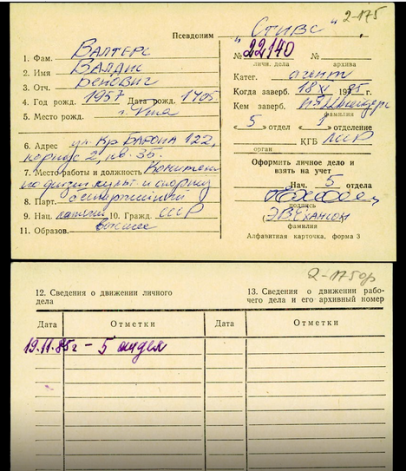 Псевдоним „Стивс“ 2-175
1. Фам. Валтерс
2. Имя Валдис
3. Отч.
4. Год рожд. 1957 Дата рожд.
5. Место рожд.
6. Адрес ул. Кр. Барона 122,
корпус 2, кв. 35.
7. Место работы и должность Комитет
по физич. культ. и спорту
8. Парт. беспартийный
9. Нац. латыш 10. Гражд. СССР
11. Образов. высшее
№ 22140 №
личн. дела архива
Катег. агент
Когда заверб. 18 XI 1985 г.
Кем заверб.
фамилия
5 отдел 1 отделение
КГБ
орган
Оформить личное дело и
взять на учет
Нач. 5 отдела
подпись
фамилия
Алфавитная карточка, форма 3
2-175др
12. Сведения о движении личного
дела
13. Сведения о движении рабо-
чего дела и его архивный номер
Дата Отметки Дата Отметки
19.11.85г – 5 отдел